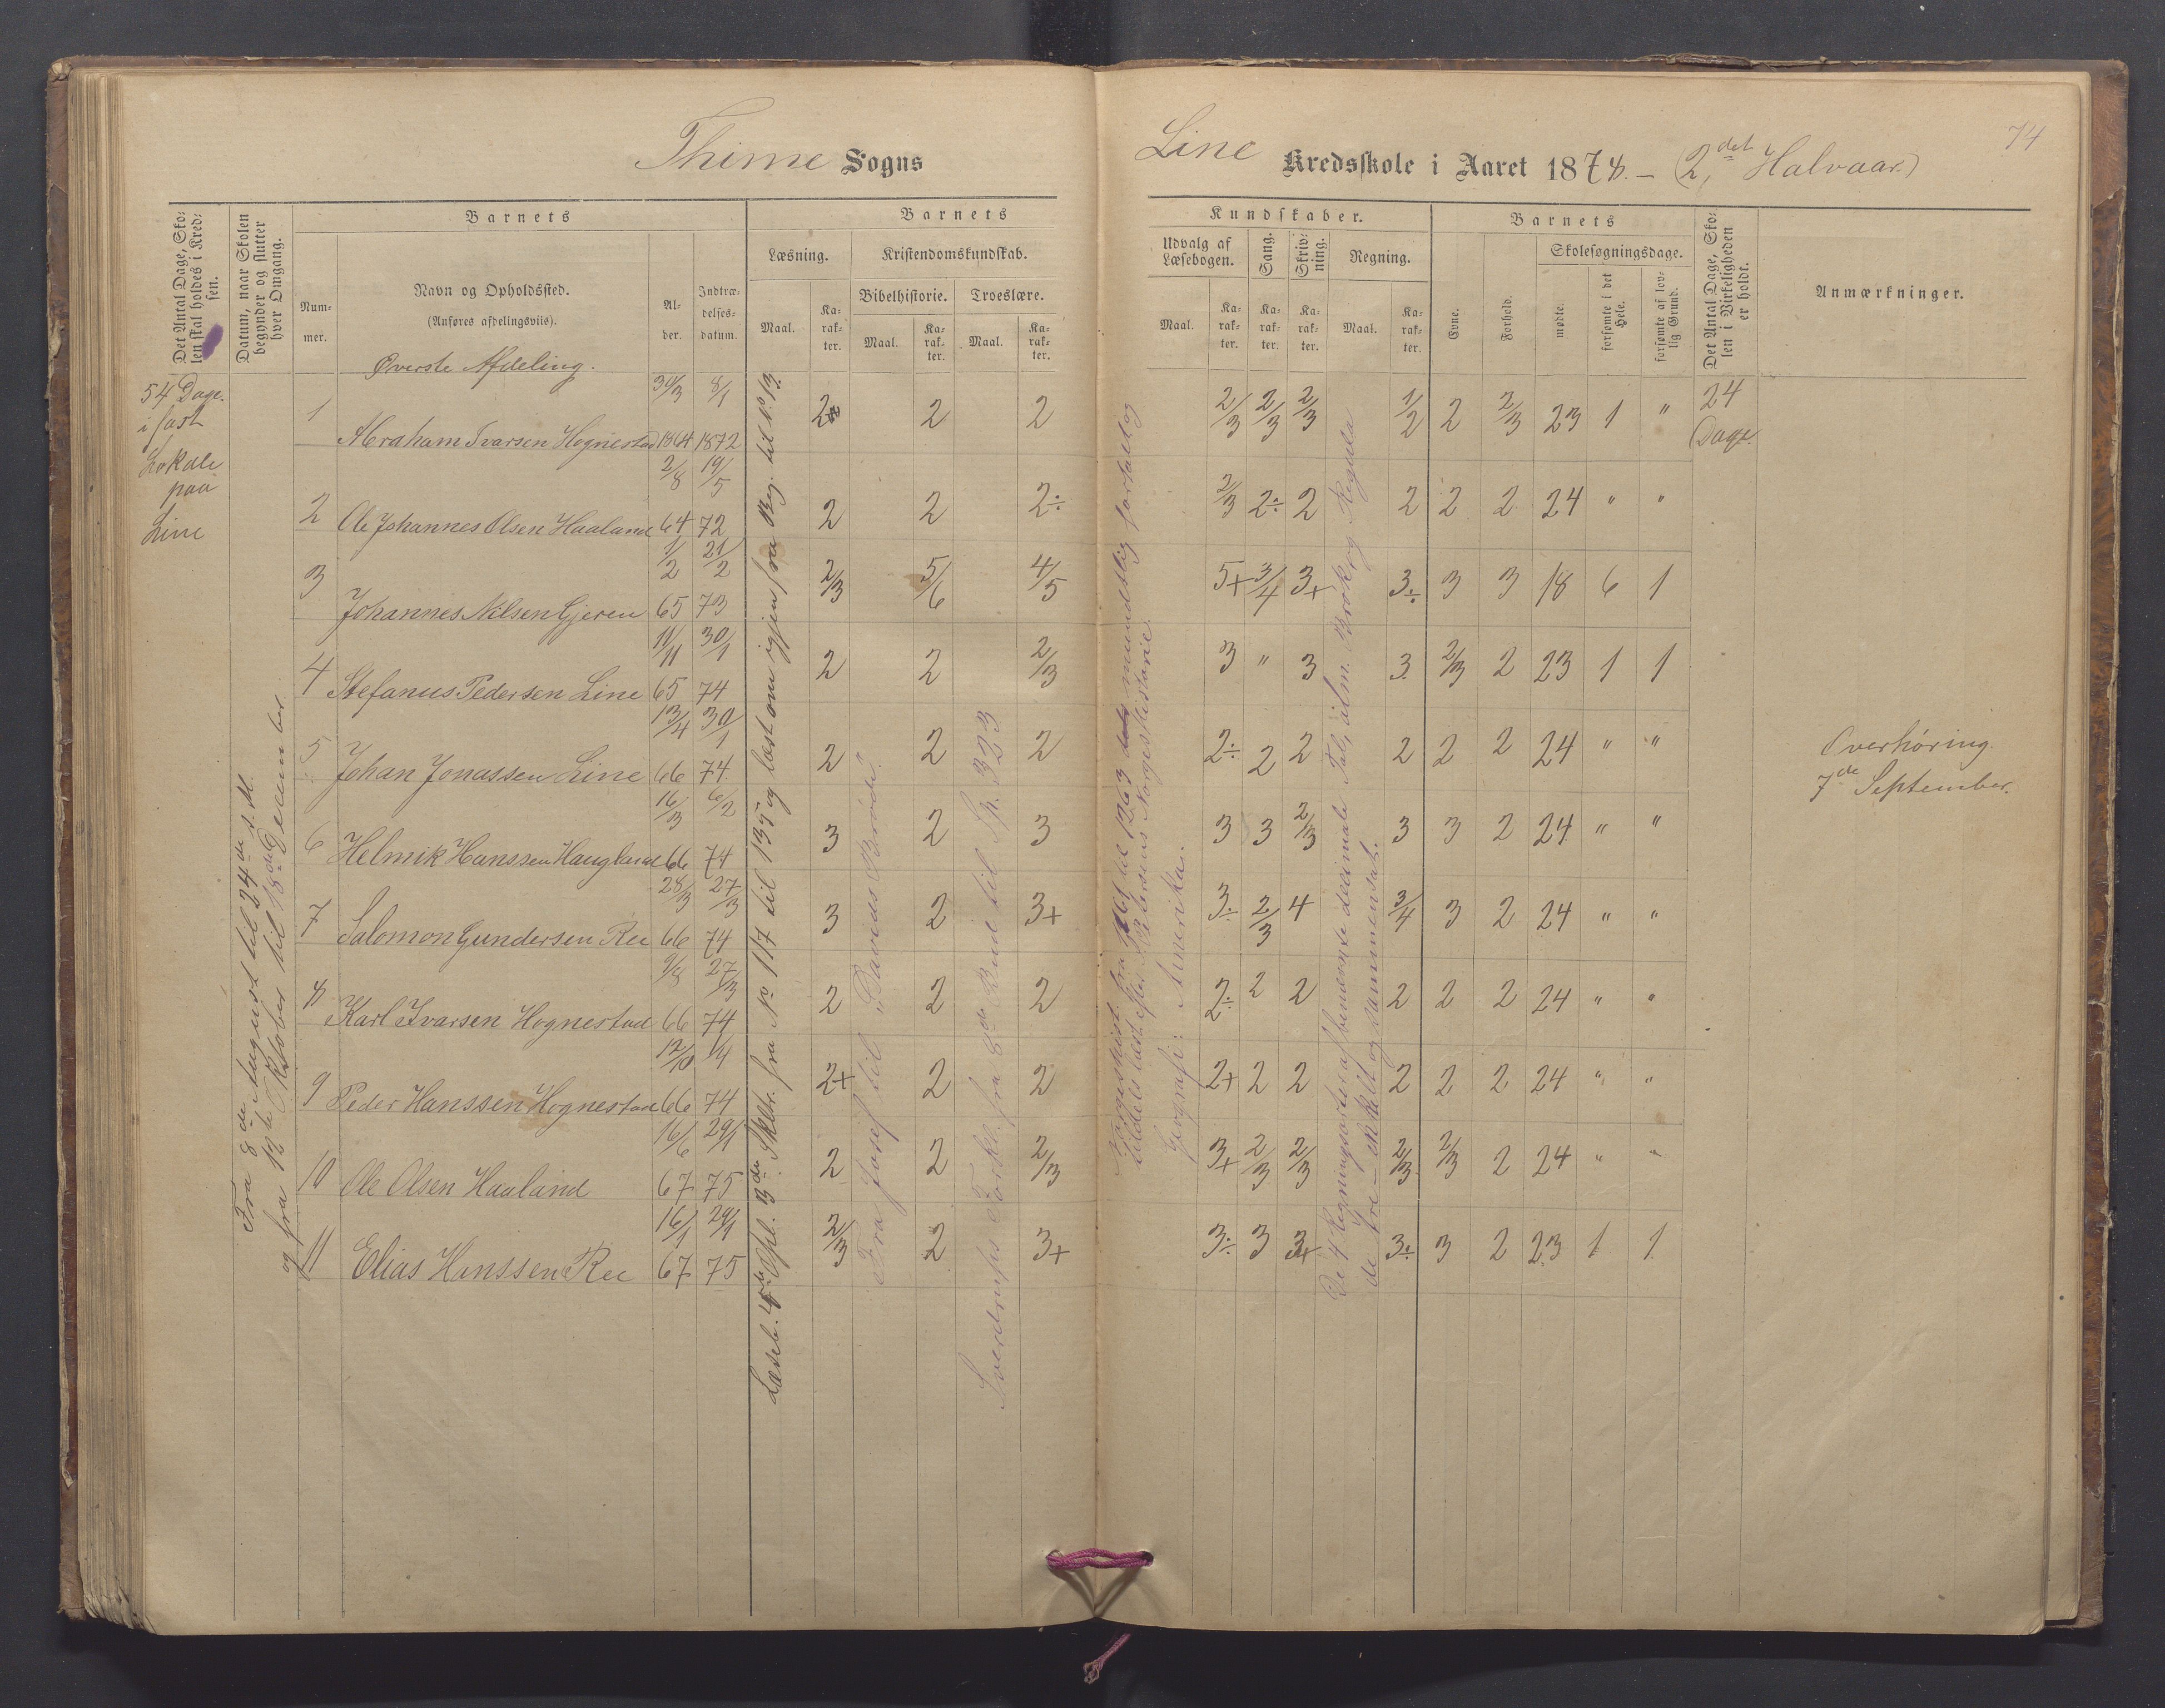 Thime Sogns
Line Kredsskole i Aaret 1878. – (2det Halvaar)
74
Det Antal Dage, Skolen skal holdes i Kredsen.
Datum, naar Skolen begynder og slutter hver Omgang.
Barnets
Nummer.
Navn og Opholdssted.
(Anføres afdelingsviis).
Alder.
Indtrædelsesdatum.
Barnets
Læsning.
Kristendomskundskab.
Maal.
Karakter.
Bibelhistorie.
Troeslære.
Maal.
Karakter.
Maal.
Karakter.
Kundskaber.
Udvalg af Læsebogen.
Sang.
Skrivning.
Regning.
Maal.
Karakter.
Karakter.
Karakter.
Maal.
Karakter.
Barnets
Evne.
Forhold.
Skolesøgningsdage.
mødte.
forsømte i det Hele.
forsømte af lovlig Grund.
Det Antal Dage, Skolen i Virkeligheden er holdt.
Anmærkninger.
Øverste Afdeling.
54 Dage.
i fast
Lokale
paa
Line
Fra 8de August til 24de s. M.
og fra 12te Oktober til 18de December.
1 Abraham Ivarsen Hognestad 30/3 1864 8/1 1872 2 2 2 2/3 2/3 2/3 1/2 2 2/3 23 1 " 24 Dage.
2 Ole Johannes Olsen Haaland 2/8 64 19/5 72 2 2 2÷ 2/3 2÷ 2 2 2 2 24 " "
3 Johannes Nilsen Gjeren 1/2 65 21/2 73 2/3 5/6 4/5 5+ 3/4 3+ 3÷ 3 3 18 6 1
4 Stefanus Pedersen Line 11/11 65 30/1 74 2 2 2/3 3 " 3 3 2/3 2 23 1 1
5 Johan Jonassen Line 13/4 66 30/1 74 2 2 2 2÷ 2 2 2 2 2 24 " "
6 Helmik Hanssen Haugland 16/3 66 6/2 74 3 2 3 3 3 2/3 3 3 2 24 " "
7 Salomon Gundersen Ree 28/3 66 27/3 74 3 2 3+ 3÷ 2/3 4 3/4 3 2 24 " "
8 Karl Ivarsen Hognestad 9/8 66 27/3 74 2 2 2 2÷ 2 2 2 2 2 24 " "
9 Peder Hanssen Hognestad 12/10 66 1/4 74 2+ 2 2 2+ 2 2 2 2 2 24 " "
10 Ole Olsen Haaland 16/6 67 29/1 75 2 2 2/3 3+ 2/3 2/3 2/3 2/3 2 24 " "
11 Elias Hanssen Ree 16/1 67 29/1 75 2/3 2 3+ 3÷ 3 3+ 3÷ 3 2 23 1 1
Læseb. 4de Opl. 3de Skltr. fra No 117 til 135 og læst om igjen fra Beg. til No 13.
Fra Josef til "Davids Brøde".
Sverdrups Forkl. fra 8de Bud til Sp. 323
Norgeshist. fra til 1263 mundtlig fortalt og
tildels læst efter Petersens Norgeshistorie.
Geografi: Amerika.
De 4 Regningsarter af benævnte decimale Tal, alm. Brøk og Regula
de tri – enkelt og sammensat.
Overhøring.
7de September.